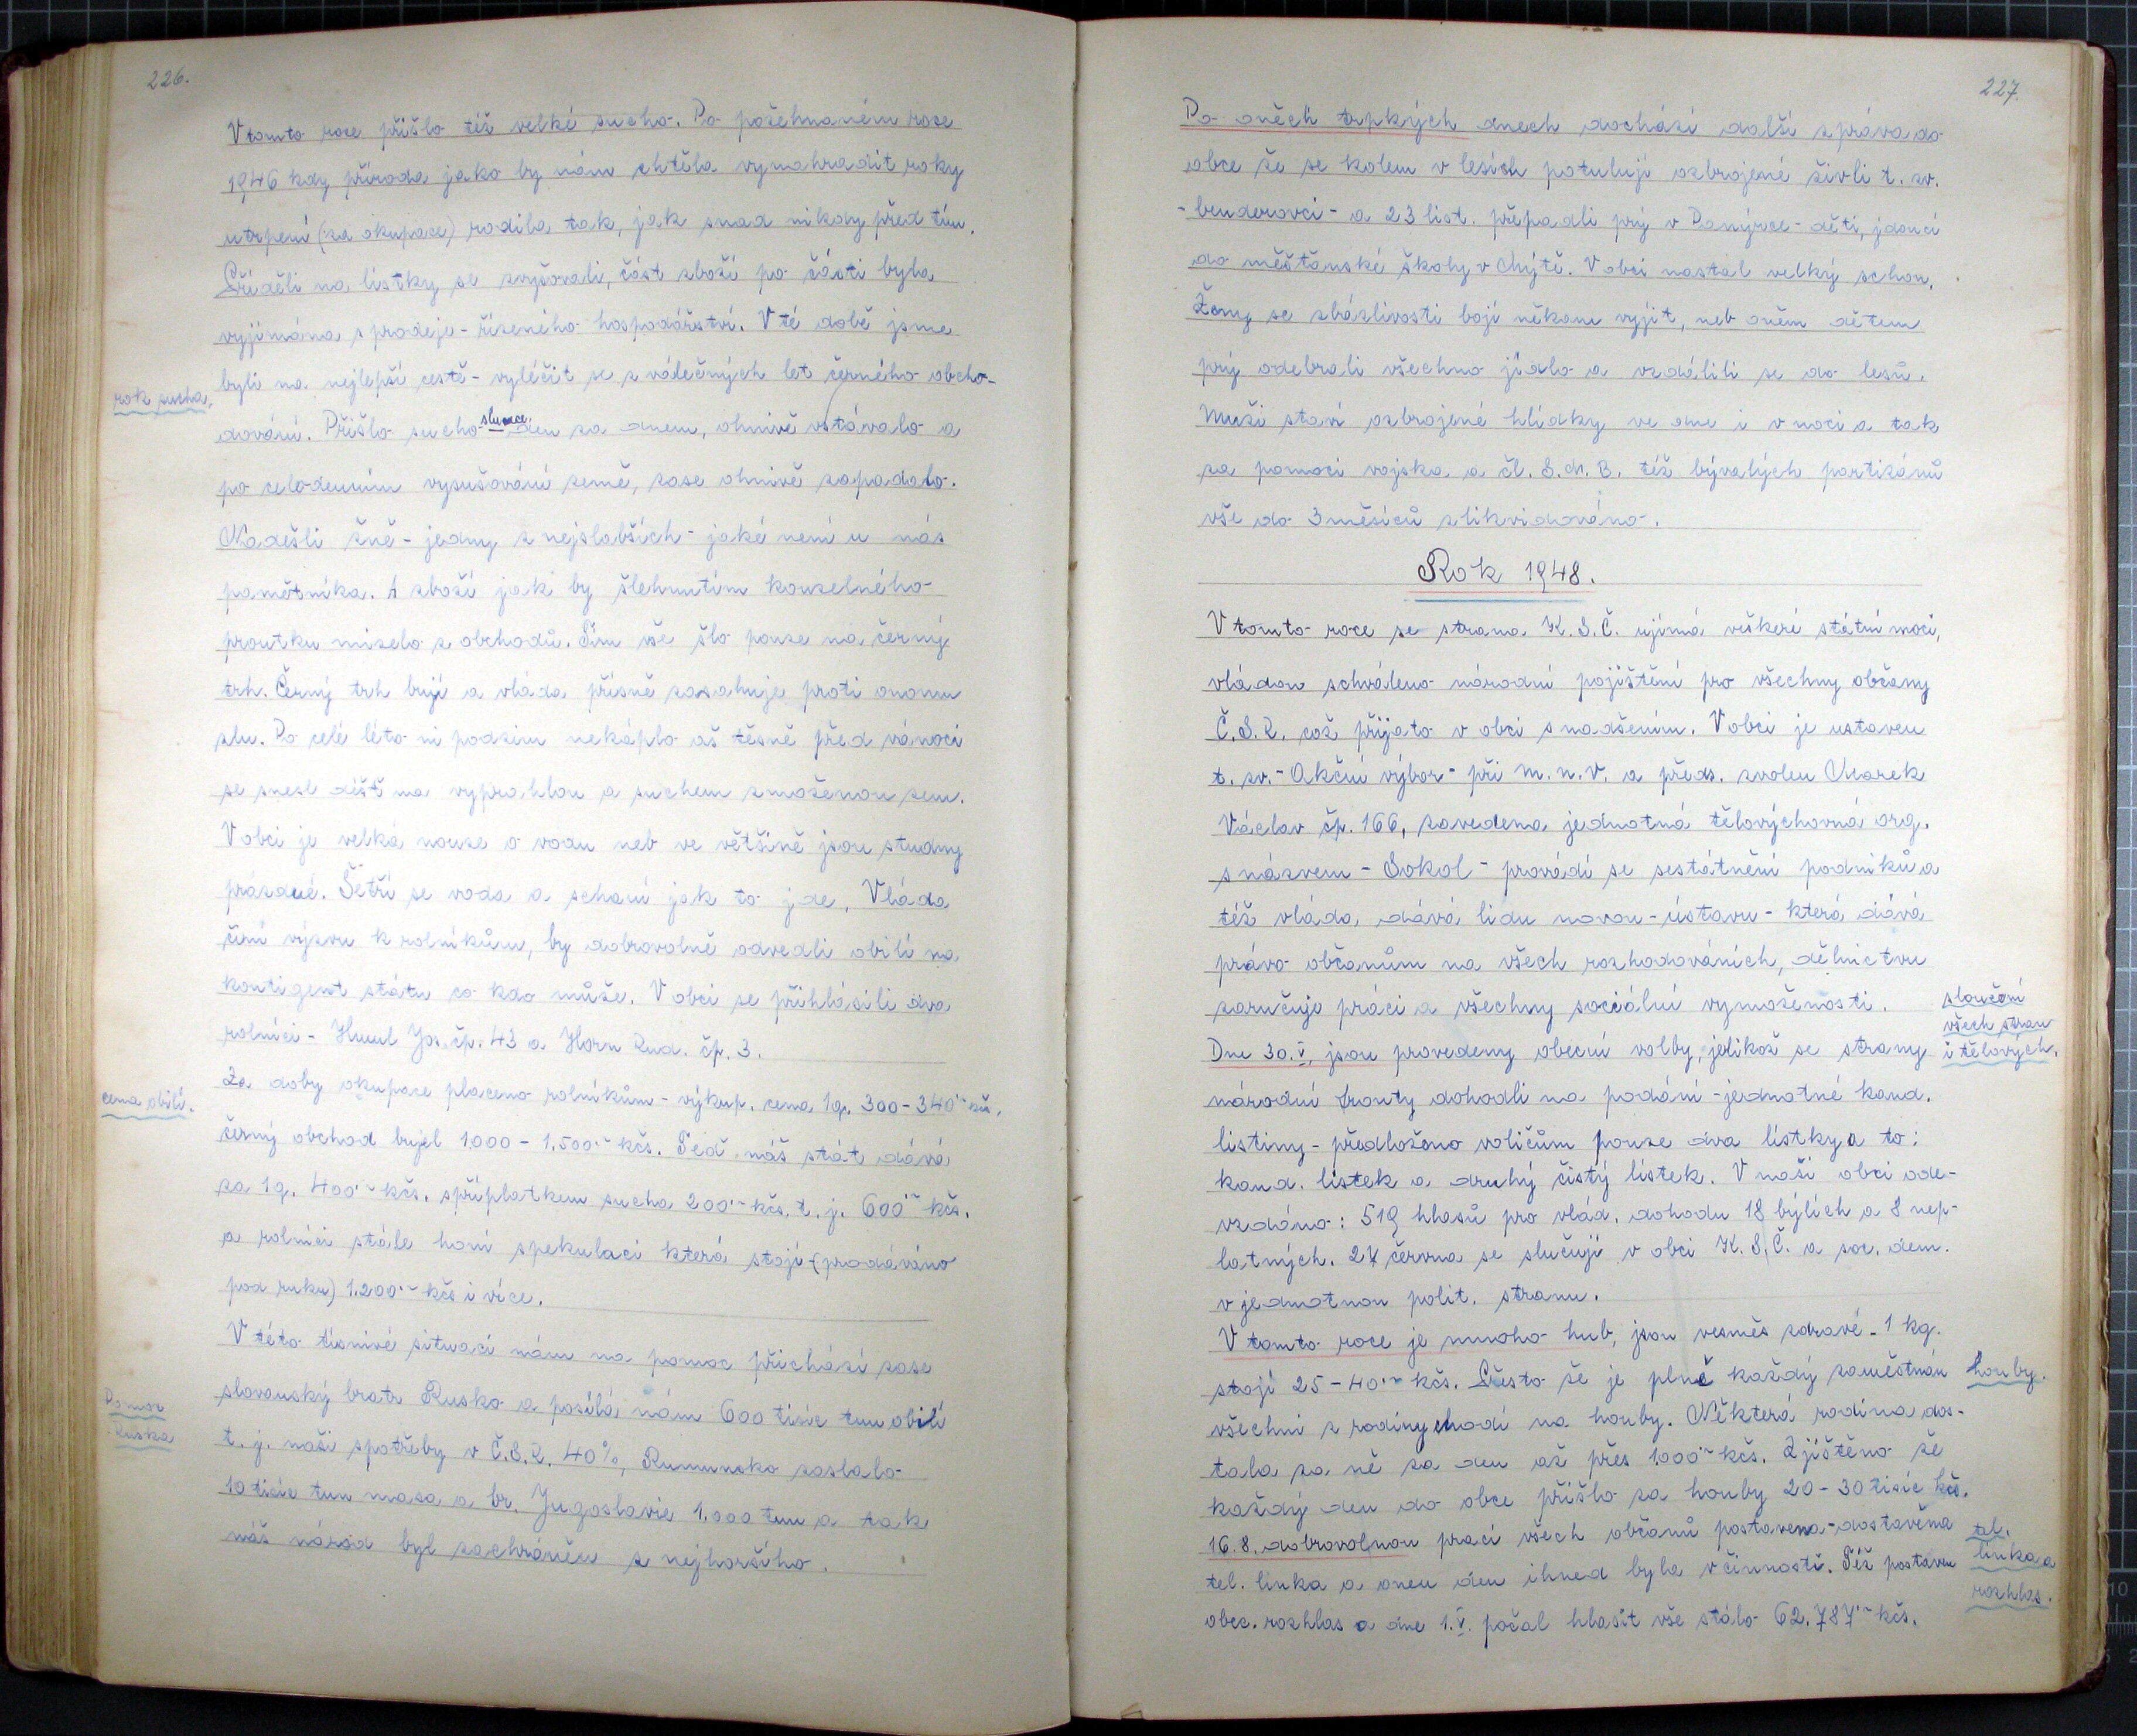 226.
V tomto roce přišlo též velké sucho. Po požehnaném roce
1946 kdy příroda jako by nám chtěla vynahradit roky
utrpení (za okupace) rodila tak, jak snad nikdy před tím.
Příděli na lístky se zvyšovali, část zboží po části byla
vyjímána s prodeje - řízeného hospodářství. V té době jsme
byli na nejlepší cestě - vyléčit se z válečných let černého obcho-
rok sucha.
dování. Přišlo sucho slunce den za dnem, ohnivě vstávalo a
po celodenním vysušování země, zase ohnivě zapadalo.
Nadešli žně - jedny z nejslabších - jaké není u nás
pamětníka. A zboží jak by šlehnutím kouzelného
proutku mizelo z obchodů. Tím vše šlo pouze na černý
trh. Černý trh bují a vláda přísně zasahuje proti onomu
zlu. Po celé léto ni podzim nekáplo až těsně před vánoci
se snesl déšť na vyprahlou a suchem zmoženou zem.
V obci je velká nouze o vodu neb ve většině jsou studny
prázdné. Šetří se voda a schání jak to jde. Vláda
činí výzvu k rolníkům, by dobrovolně odvedli obilí na
kontigent státu co kdo může. V obci se přihlásili dva
rolníci - Hmul Jos. čp. 43 a Horn Rud. čp. 3.
cena obilí.
Za doby okupace placeno rolníkům - výkup. cena 1q. 300 - 340·- kčs.
černý obchod bujel 1.000 - 1.500·- kčs. Teď náš stát dává
za 1q. 400·- kčs. spříplatkem sucha 200·- kčs. t. j. 600·- kčs.
a rolníci stále honí spekulaci která stojí - (prodáváno
pod ruku) 1.200·- kčs i více.
V této tísnivé situaci nám na pomoc přichází zase
Pomoc
Ruska
slovanský bratr Rusko a posílá nám 600 tisíc tun obilí
t. j. naší spotřeby v Č.S.R. 40%, Rumunsko zaslalo
10 tisíc tun masa a br. Jugoslavie 1.000 tun a tak
náš národ byl zachráněn z nejhoršího.
227.
Po oněch trpkých dnech dochází další zpráva do
obce že se kolem v lesích potulují ozbrojené živli t. zv.
- benderovci - a 23 list. přepadli prý v - děti, jdoucí
do měšťanské školy v Chýtě. V obci nastal velký schon.
Ženy se zbázlivosti bojí někam vyjít, neb oněm dětem
prý odebrali všechno jídlo a vzdálili se do lesů.
Muži staví ozbrojené hlídky ve dne i v noci a tak
za pomoci vojska a čl. S.N.B. též bývalých partizánů
vše do 3 měsíců zlikvidováno.
Rok 1948.
V tomto roce se strana K.S.Č. ujímá veškeré státní moci,
vládou schváleno národní pojištění pro všechny občany
Č.S.R. což přijato v obci s nadšením. V obci je ustaven
t. zv. - Akční výbor - při m.n.v. a předs. zvolen Marek
Václav čp. 166, zavedena jednotná tělovýchovná org.
s názvem - Sokol - provádí se sestátnění podniků a
též vláda dává lidu novou - ústavu - která dává
právo občanům na všech rozhodováních, dělnictvu
zaručuje práci a všechny sociální vymoženosti.
sloučení
všech stran
i tělových.
Dne 30.V. jsou provedeny obecní volby, jelikož se strany
národní fronty dohodli na podání - jednotné kand.
listiny - předloženo voličům pouze dva lístky a to:
kand. lístek a druhý čistý lístek. V naší obci ode-
vzdáno: 519 hlasů pro vlád. dohodu 18 bílích a 8 nep-
latných. 27 června se slučují v obci K.S.Č. a soc. dem.
v jednotnou polit. stranu.
V tomto roce je mnoho hub, jsou vesměs zdravé - 1 kg.
stojí 25 - 40·- kčs. Přesto že je plně každý zaměstnán
houby.
všechni z rodiny chodí na houby. Některá rodina dos-
tala za ně za den až přes 1.000·- kčs. Zjištěno že
každý den do obce přišlo za houby 20 - 30 tisíc kčs.
16.8. dobrovolnou prací všech občanů postavena - dostavěna
tel.
linka a
rozhlas.
tel. linka a onen den ihned byla v činnosti. Též postaven
obec. rozhlas a dne 1.V. počal hlásit vše stálo 62.787·- kčs.